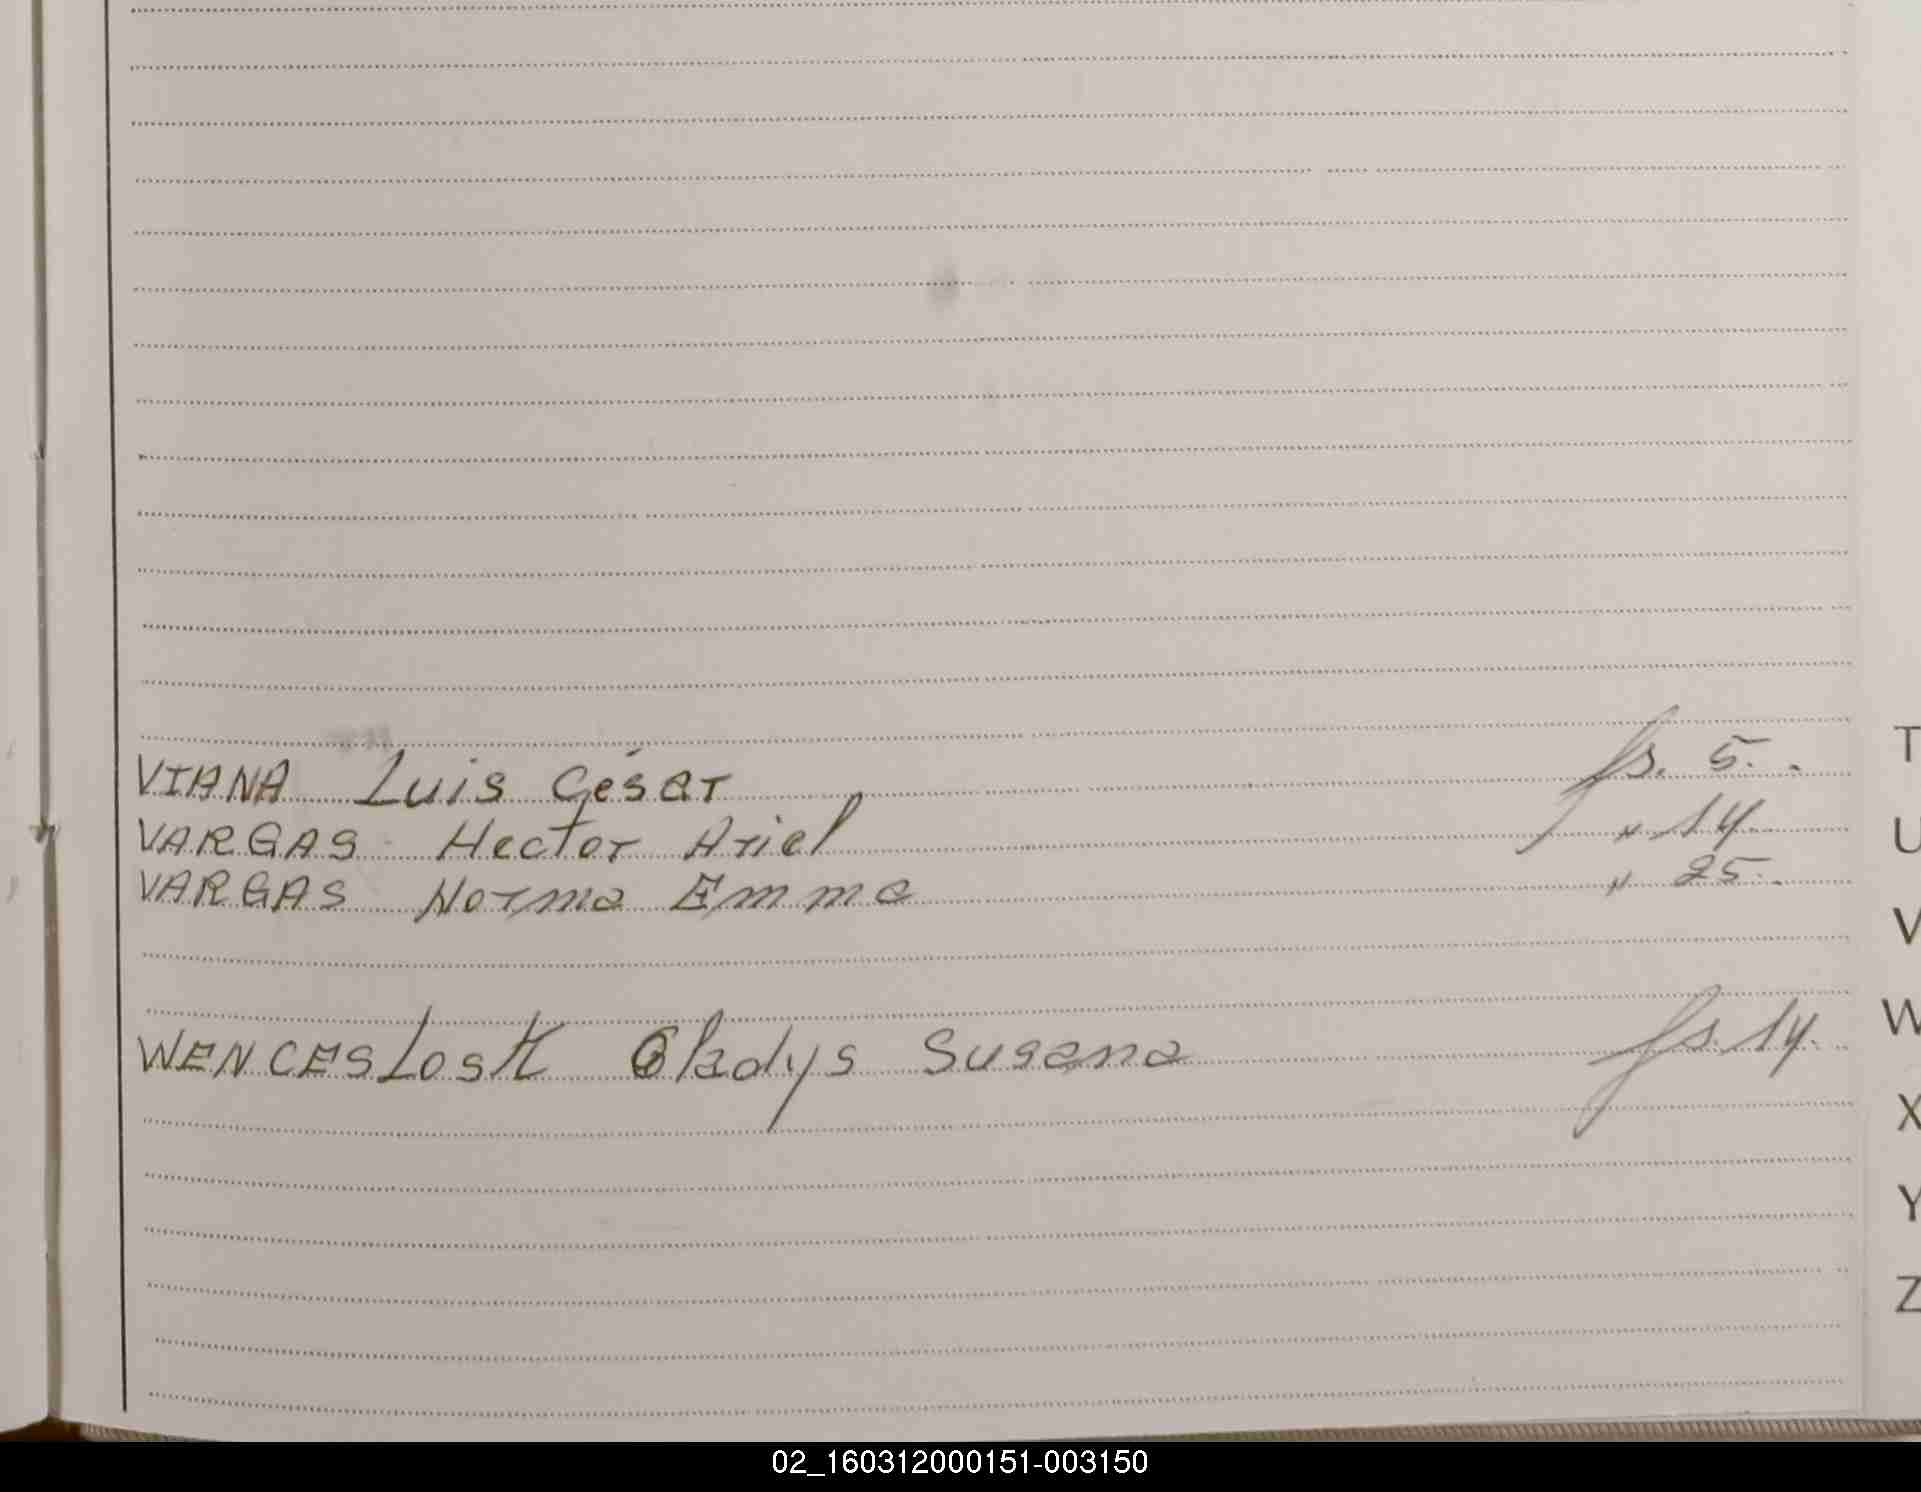 VIANA Luis César fs. 5.
VARGAS Hector Ariel " 14
VARGAS Norma Emma " 25.
WENCESLOSK Gladys Susana fs. 14.
T
U
V
W
X
Y
Z
02_160312000151-003150